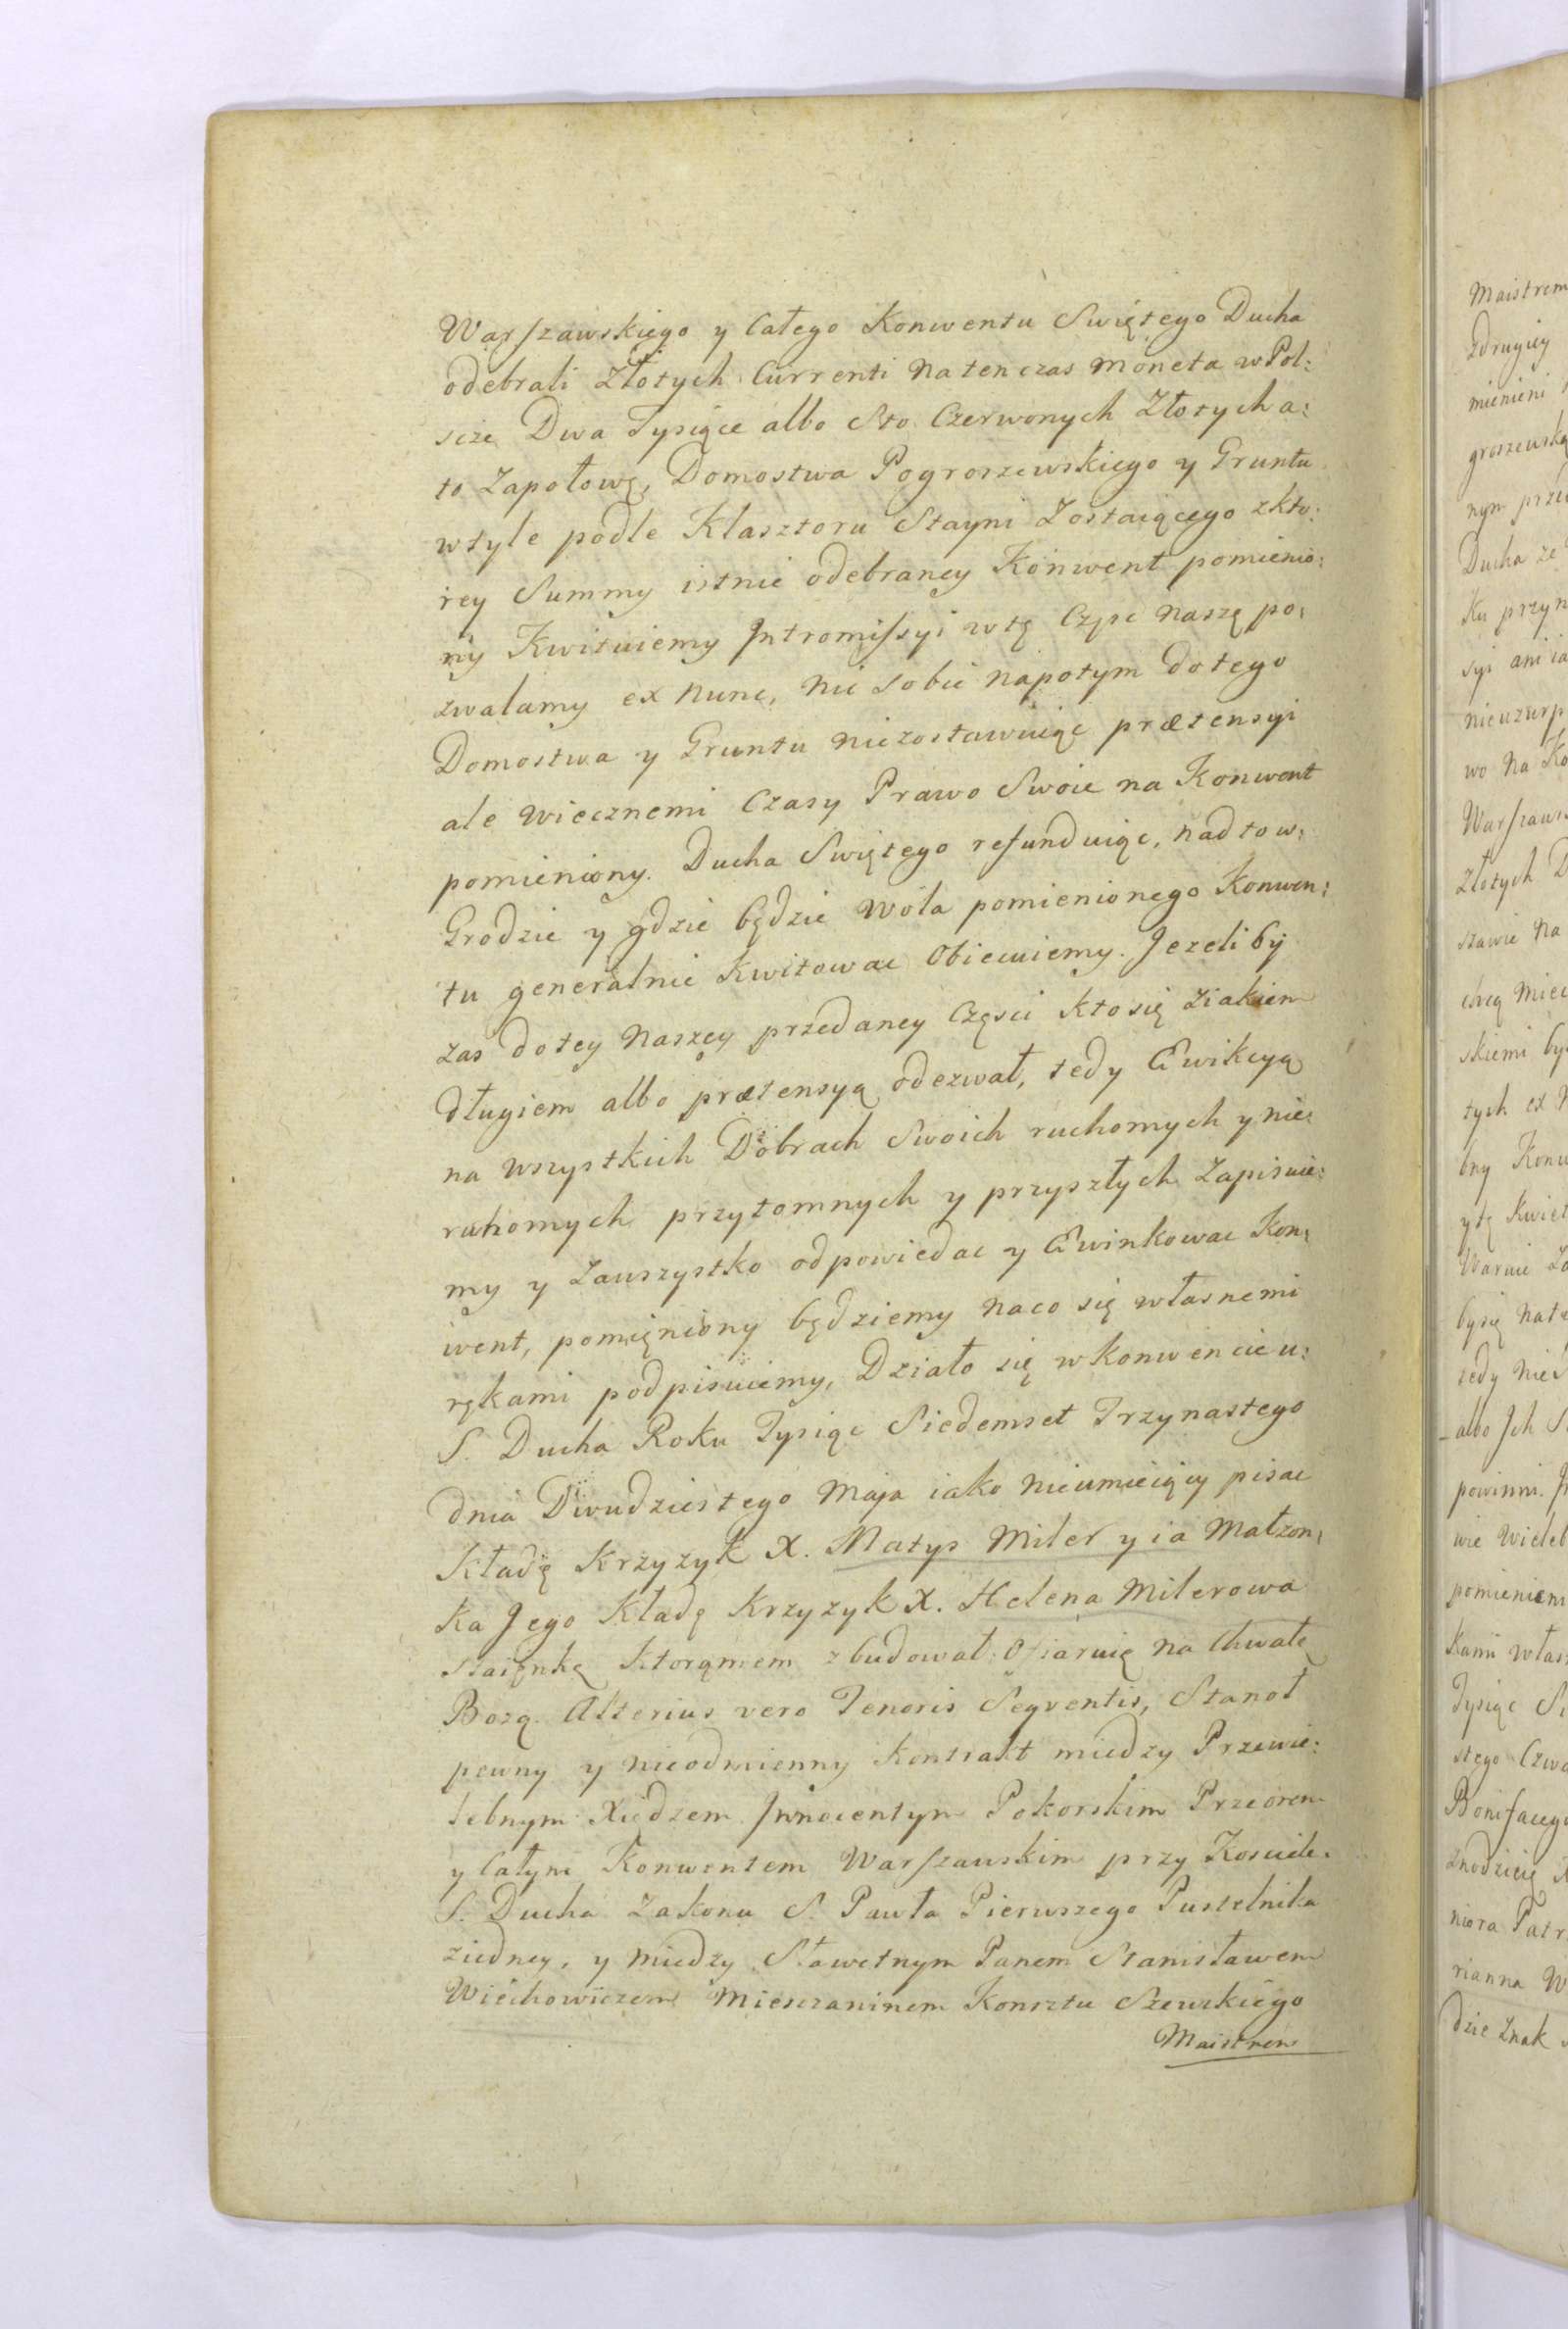 Warszawskiego y Całego Konwentu Swiętego Ducha
odebrali Złotych Currenti natenczas moneta w Pol:
scze Dwa Tysiące albo Sto Czerwonych Złotych a:
to Zapołowę, Domostwa Pogroszewskiego y Gruntu
wtyle podle Klasztoru Stayni Zostaiącego zkto:
rey Summy istnie odebraney Konwent pomienio:
ny Kwituiemy Intromissyi wtę Częsc naszę po:
zwalamy ex nunc, nic sobie napotym dotego
Domostwa y Gruntu niezostawuiąc prætensyi
ale wiecznemi Czasy Prawo Swoie na Konwent
pomieniony. Ducha Swiętego refunduiąc, nadto w:
Grodzie y gdzie będzie wola pomienionego Konwen:
tu generalnie kwitowac Obiecuiemy. Jezeli by
zas dotey naszey przedaney Częsci kto się ziakiem
długiem albo prætensyą odezwał, tedy Ewikcyą
na wszystkich Dobrach Swoich ruchomych y nie:
ruhomych przytomnych y przyszłych Zapisuie:
my y Zawszystko odpowiedac y Ewinkowac Kon:
went, pomięniony będziemy naco się własnemi
rękami podpisuiemy, Działo się w konwencie u:
S. Ducha Roku Tysiąc Siedemset Trzynastego
dnia Dwudziestego Maja iako nieumieiący pisac
kładę Krzyzyk X. Matys Miler y ia Małzon:
ka Jego kładę Krzyzyk X. Helena Milerowa
staięnkę ktorąmem zbudował Ofiaruię na Chwałę
Bozą. Alterius vero Tenoris Seqventis, Stanoł
pewny y nieodmienny kontrakt miedzy Przewie:
lebnym Xiędzem Innocentym Pokorskim Przeorem
y Całym Konwentem Warszawskim przy Kosciele.
S. Ducha Zakonu S. Pawła Pierwszego Pustelnika
ziedney, y miedzy Sławetnym Panem Stanisławem
Wiechowiczem Mieszaninem Konsztu Szewskiego
Maistrem